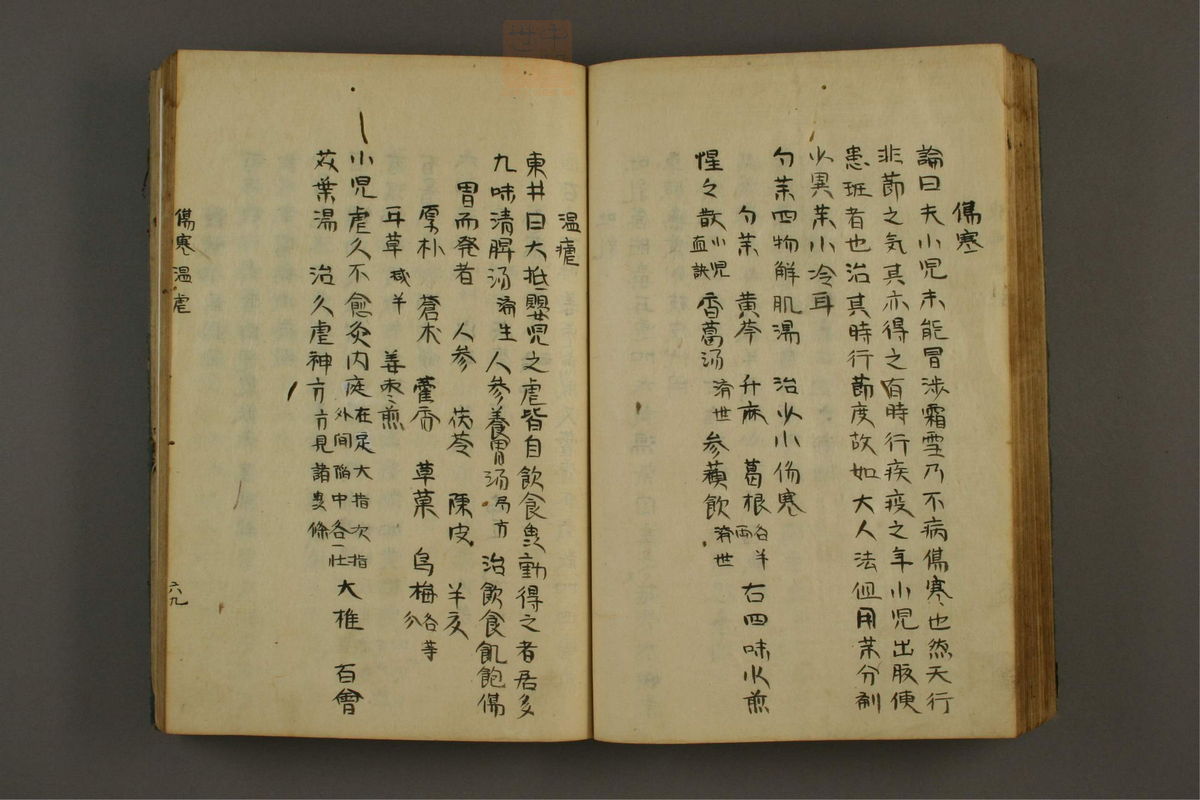 傷寒
論曰夫小児未能冒渉霜雪乃不病傷寒也然天行
非節之気其亦得之有時行疾疫之年小児出胘便
患班者也治其時行節度故如大人法但用茱分剤
少異茱小冷耳
勺茱四物解肌湯 治少小伤寒
勺茱 黄芩 升麻 葛根各半両 右四味水煎
惺々散小児直訣 香葛汤済世 参蘓飲済世
温瘧
東井曰大抵嬰児之虐皆自飲食曳動得之者居多
九味清脾汤済生 人参養胃汤局方 治飲食飢飽傷
胃而発者 人参 茯苓 陳皮 半夏
厚朴 蒼朮 藿香 草菓 烏梅各等分
耳草減半 姜枣煎
小児虐久不愈灸内庭在足大指次指外间陷中各一壮 大椎 百會
茨葉湯 治久虐神方方見諸虐條
傷寒 温虐
六九